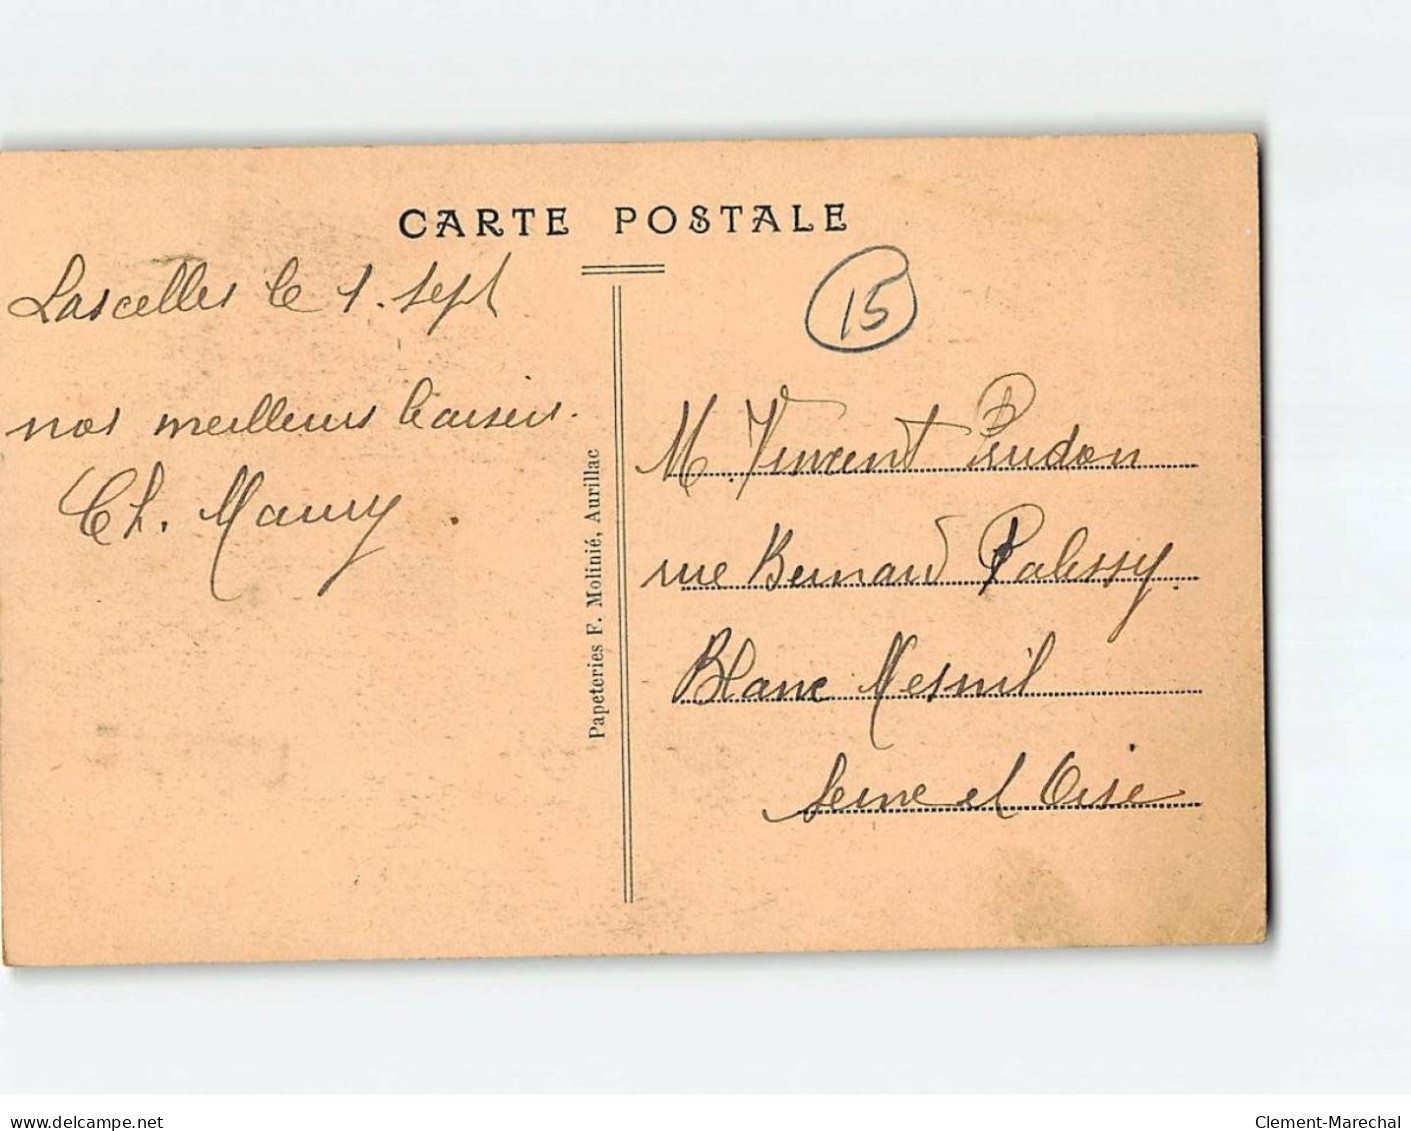 CARTE POSTALE
Lascelles le 1. Sept
nos meilleurs baisers.
Ch. Maury.
Papeteries F. Molinié, Aurillac
15
M. Vincent Prudon
rue Bernard Palissy.
Blanc Mesnil
Seine et Oise
www.delcampe.net
Clement-Marechal